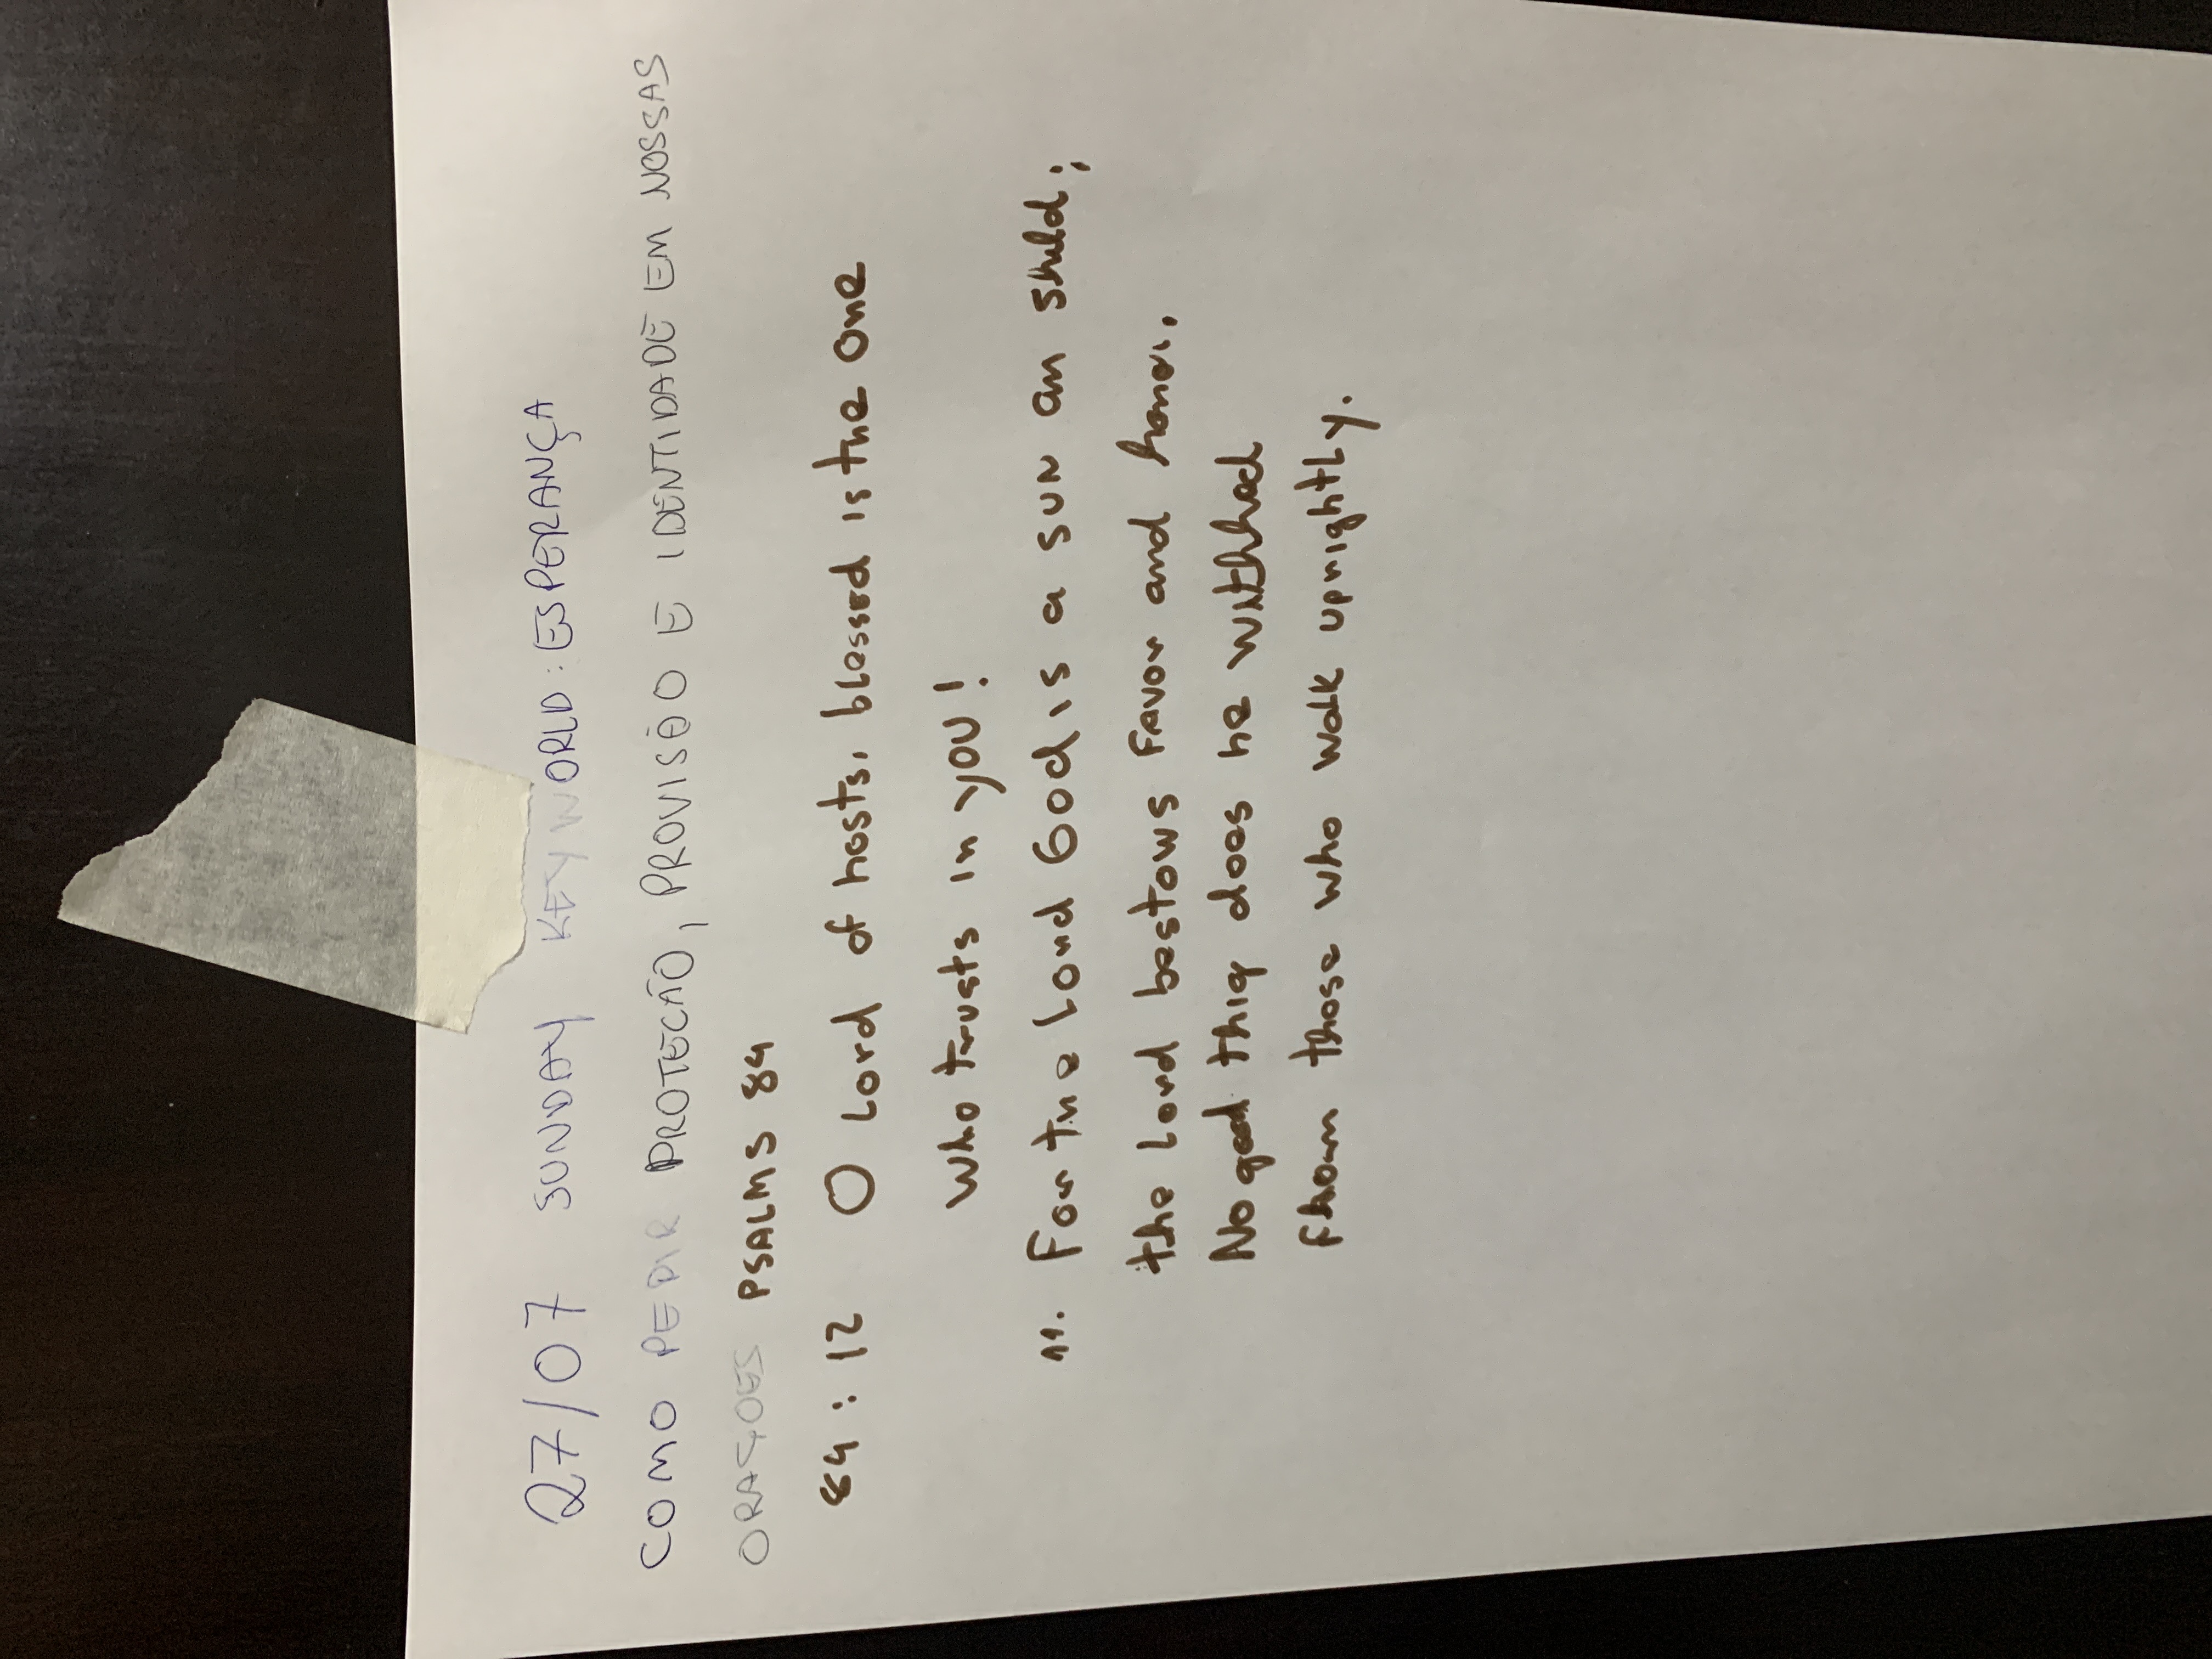 27/07 SUNDAY KEY WORLD: ESPERANÇA
COMO PEDIR PROTECÃO, PROVISÕO E IDENTIDADE EM NOSSAS
ORAÇOES PSALMS 84
84:12 O Lord of hosts, blessed is the one
who trusts in you!
11. For the Lord God is a sun an shild;
the Lord bestows favor and honor.
No good thig does he withhod
fhom those who walk uprightly.